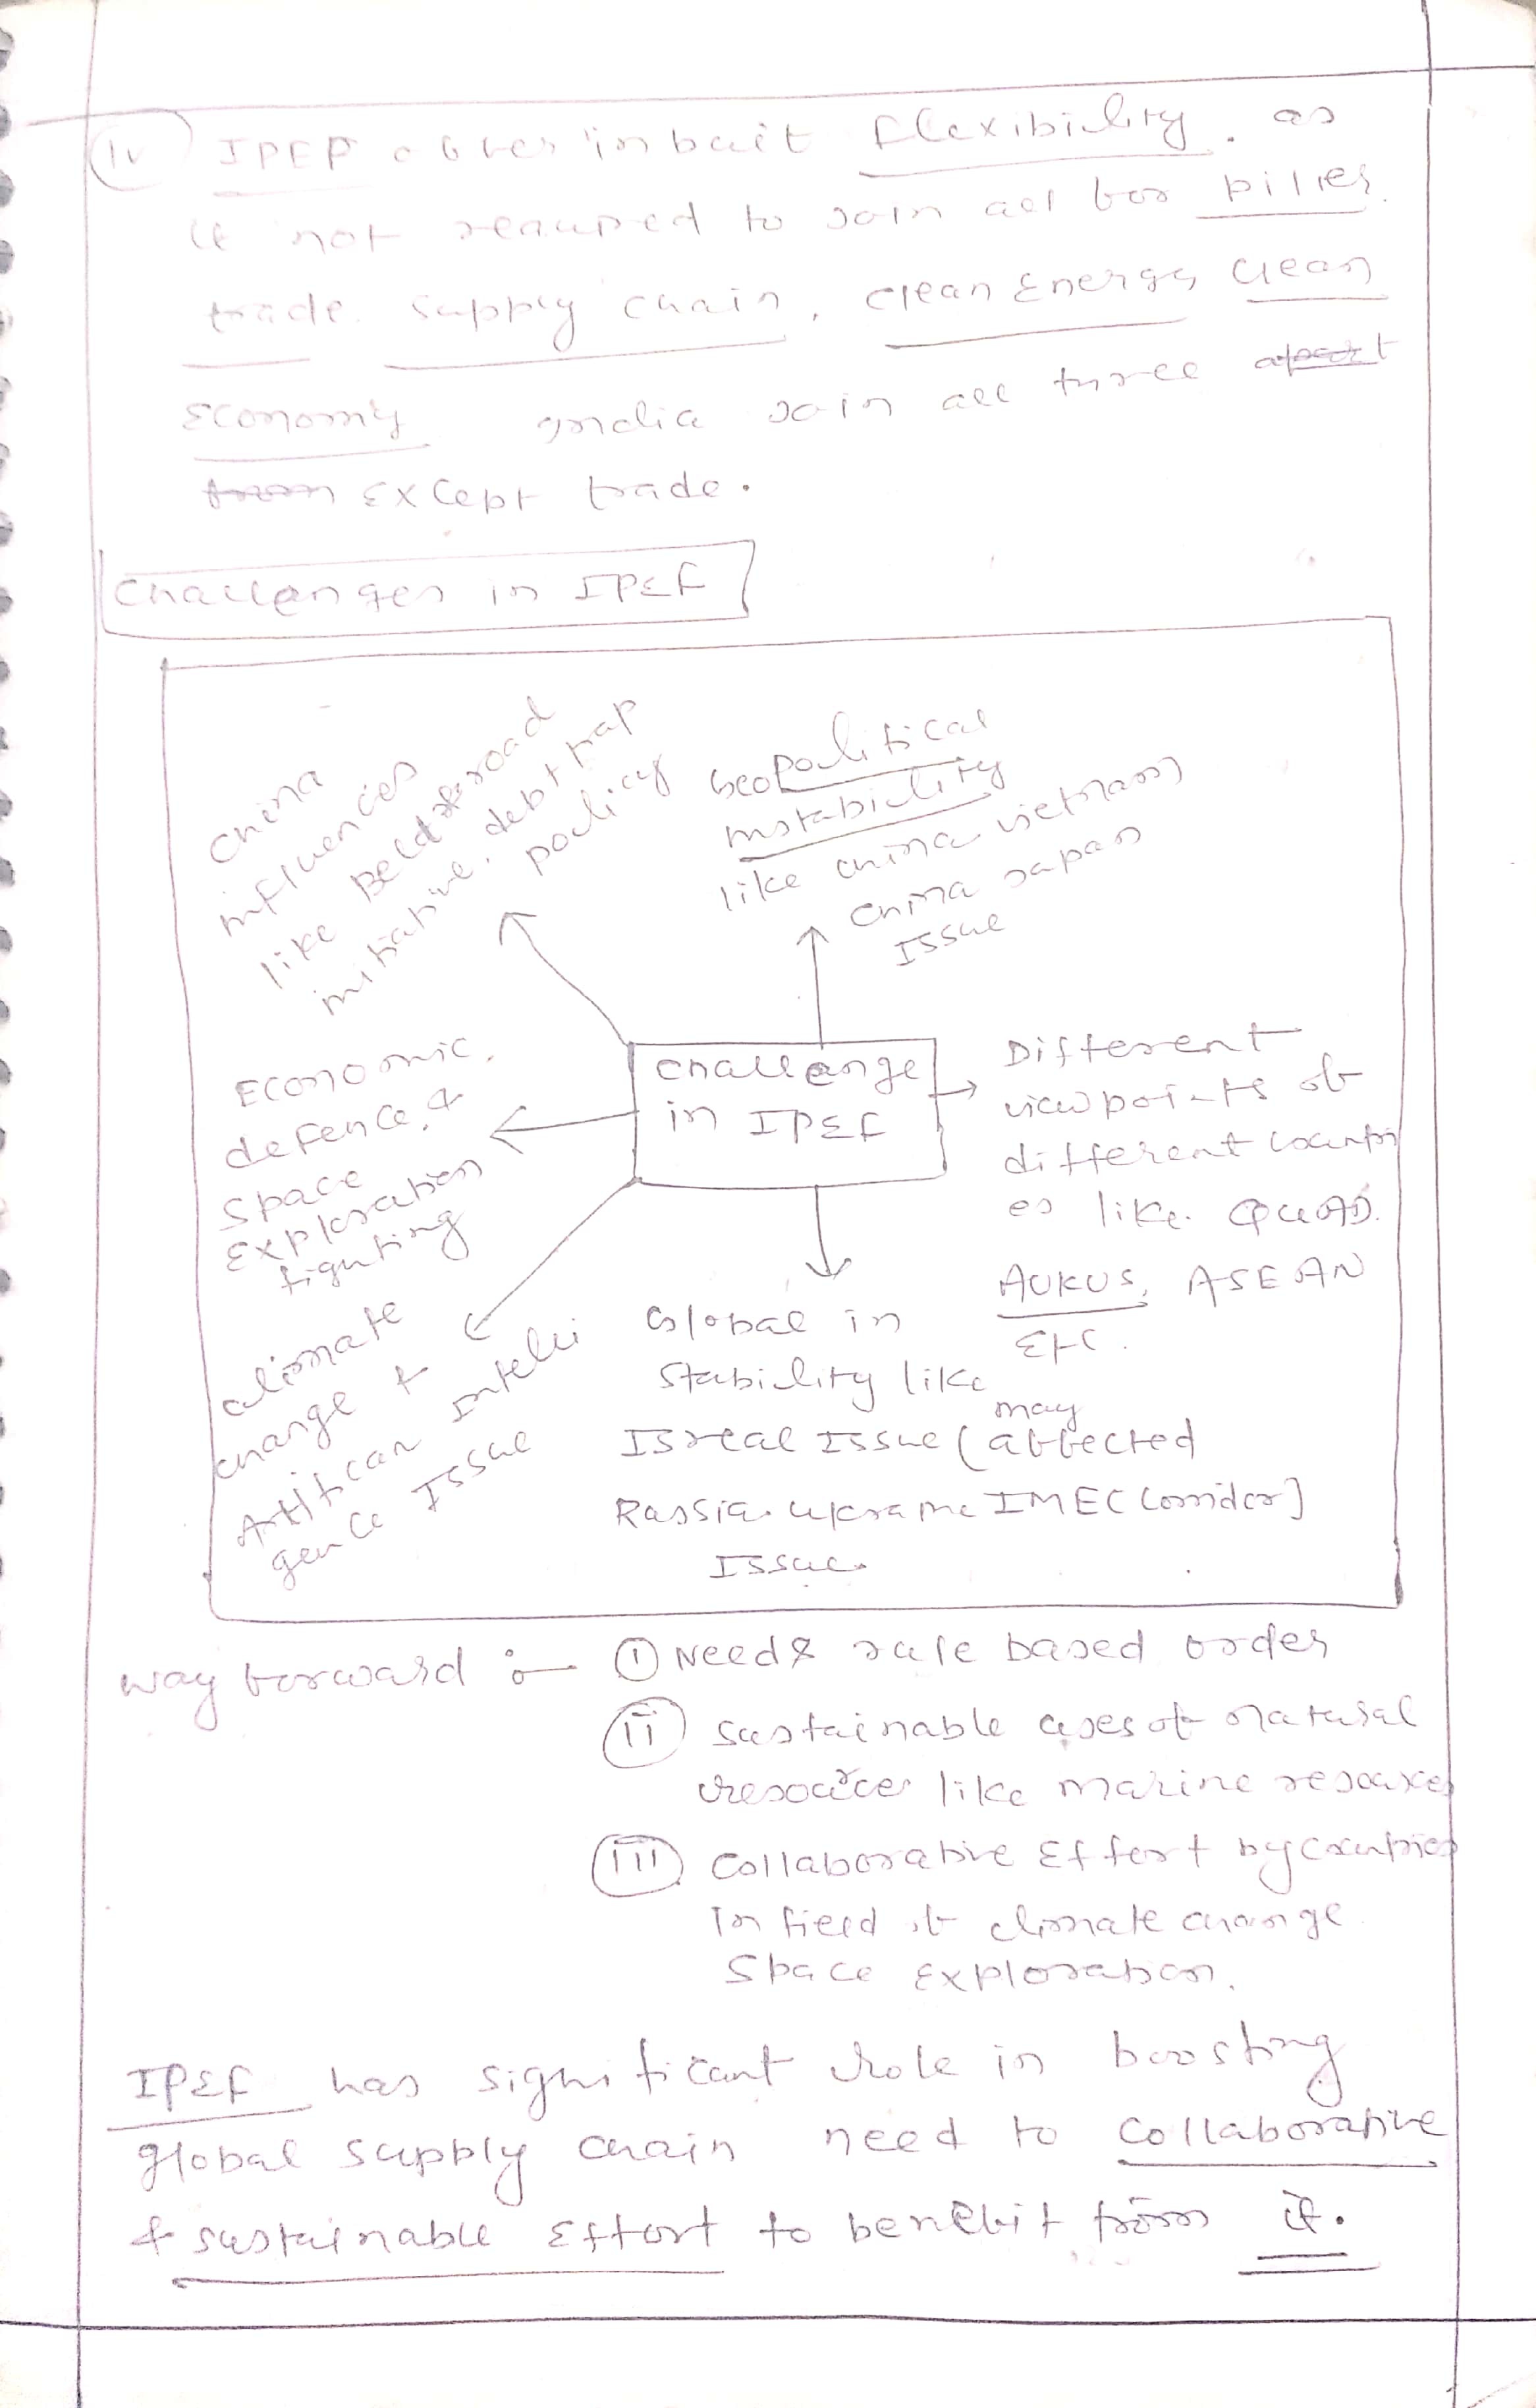 iv IPEF offers inbuilt flexibility, as
it not required to join all four pillers
trade, supply chain, clean Energy, clean
Economy India join all three apart
from Except trade.
Challenges in IPEF
China
influences
like Belt & road
initiative, debt trap
policy
Geopolitical
instability
like china vietnam
china Japan
Issue
Challenge
in IPEF
Different
viewpoints of
different countri
es like QUAD.
AUKUS, ASEAN
Etc.
Economic,
defence, &
Space
Exploration
fighting
climate
change &
Artifical Intelli
gence Issue
Global in
stability like
Isreal Issue (may affected
Russia-Ukraine IMEC Corridor]
Issue.
way forward :- (i) Needs rule based order
(ii) Sustainable uses of natural
resources like marine resources
(iii) Collaborative Effort by countries
In field of climate change
Space Exploration.
IPEF has significant role in boosting
global supply chain need to collaborative
& sustainable Effort to benefit from it.